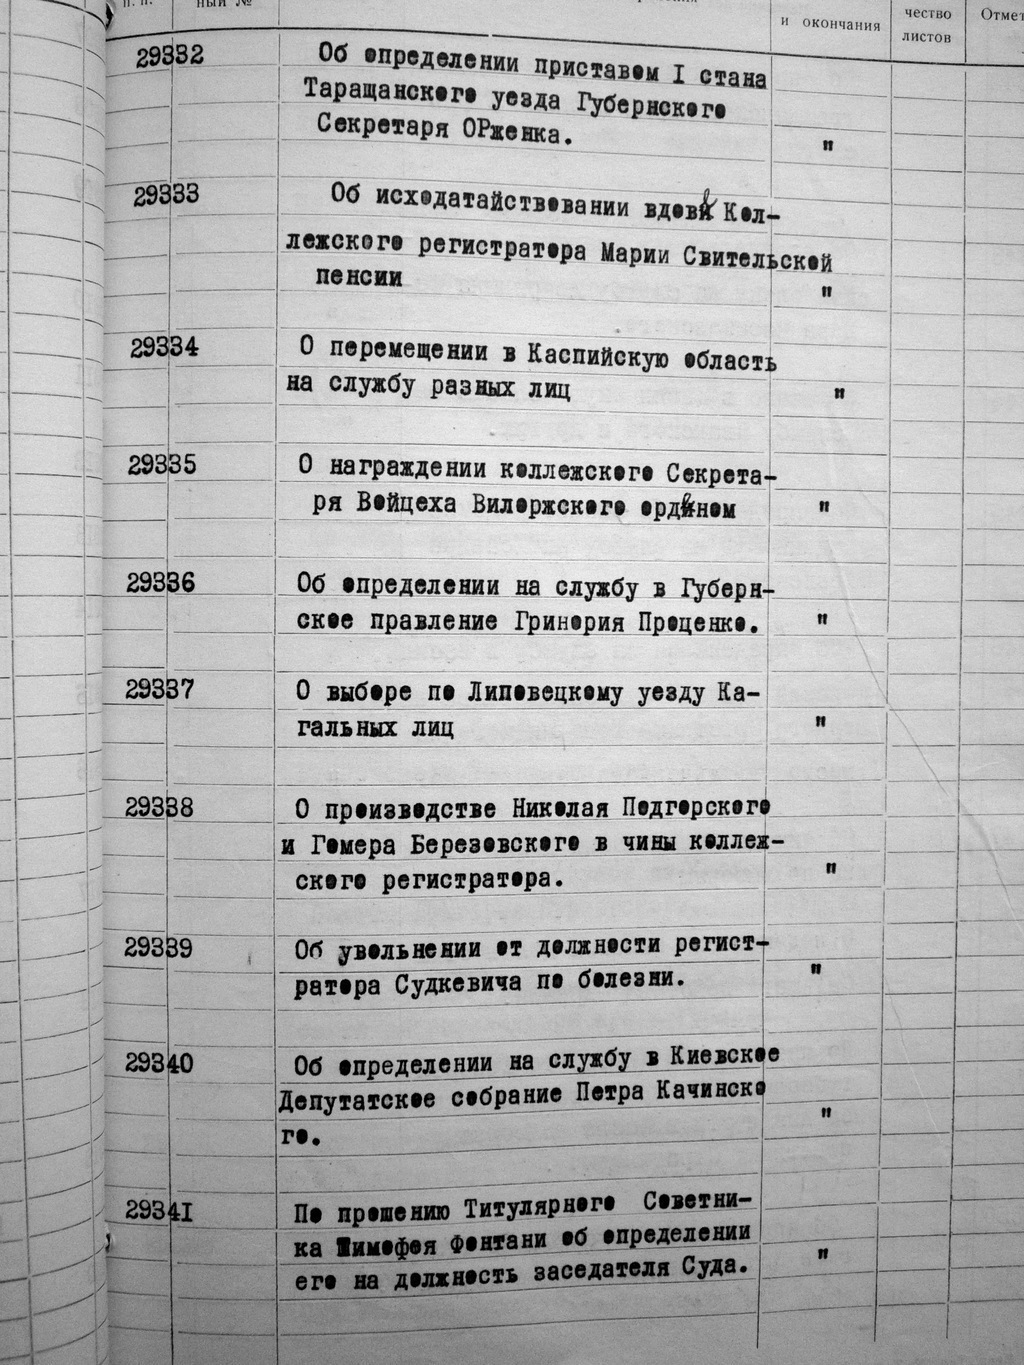 п. п.
ный №
и окончания
чество
листов
Отмет
29332 Об определении приставом I стана
Таращанского уезда Губернского
Секретаря ОРженка. "
29333 Об исходатайствовании вдове Кол-
лежского регистратора Марии Свительской
пенсии "
29334 О перемещении в Каспийскую область
на службу разных лиц "
29335 О награждении коллежского Секрета-
ря Войцеха Вилоржского орденом "
29336 Об определении на службу в Губерн-
ское правление Гринория Проценко. "
29337 О выборе по Липовецкому уезду Ка-
гальных лиц "
29338 О производстве Николая Подгорского
и Гомера Березовского в чины коллеж-
ского регистратора. "
29339 Об увольнении от должности регист-
ратора Судкевича по болезни. "
29340 Об определении на службу в Киевское
Депутатское собрание Петра Качинско
го. "
29341 По прошению Титулярного Советни-
ка Тимофея Фонтани об определении
его на должность заседателя Суда. "